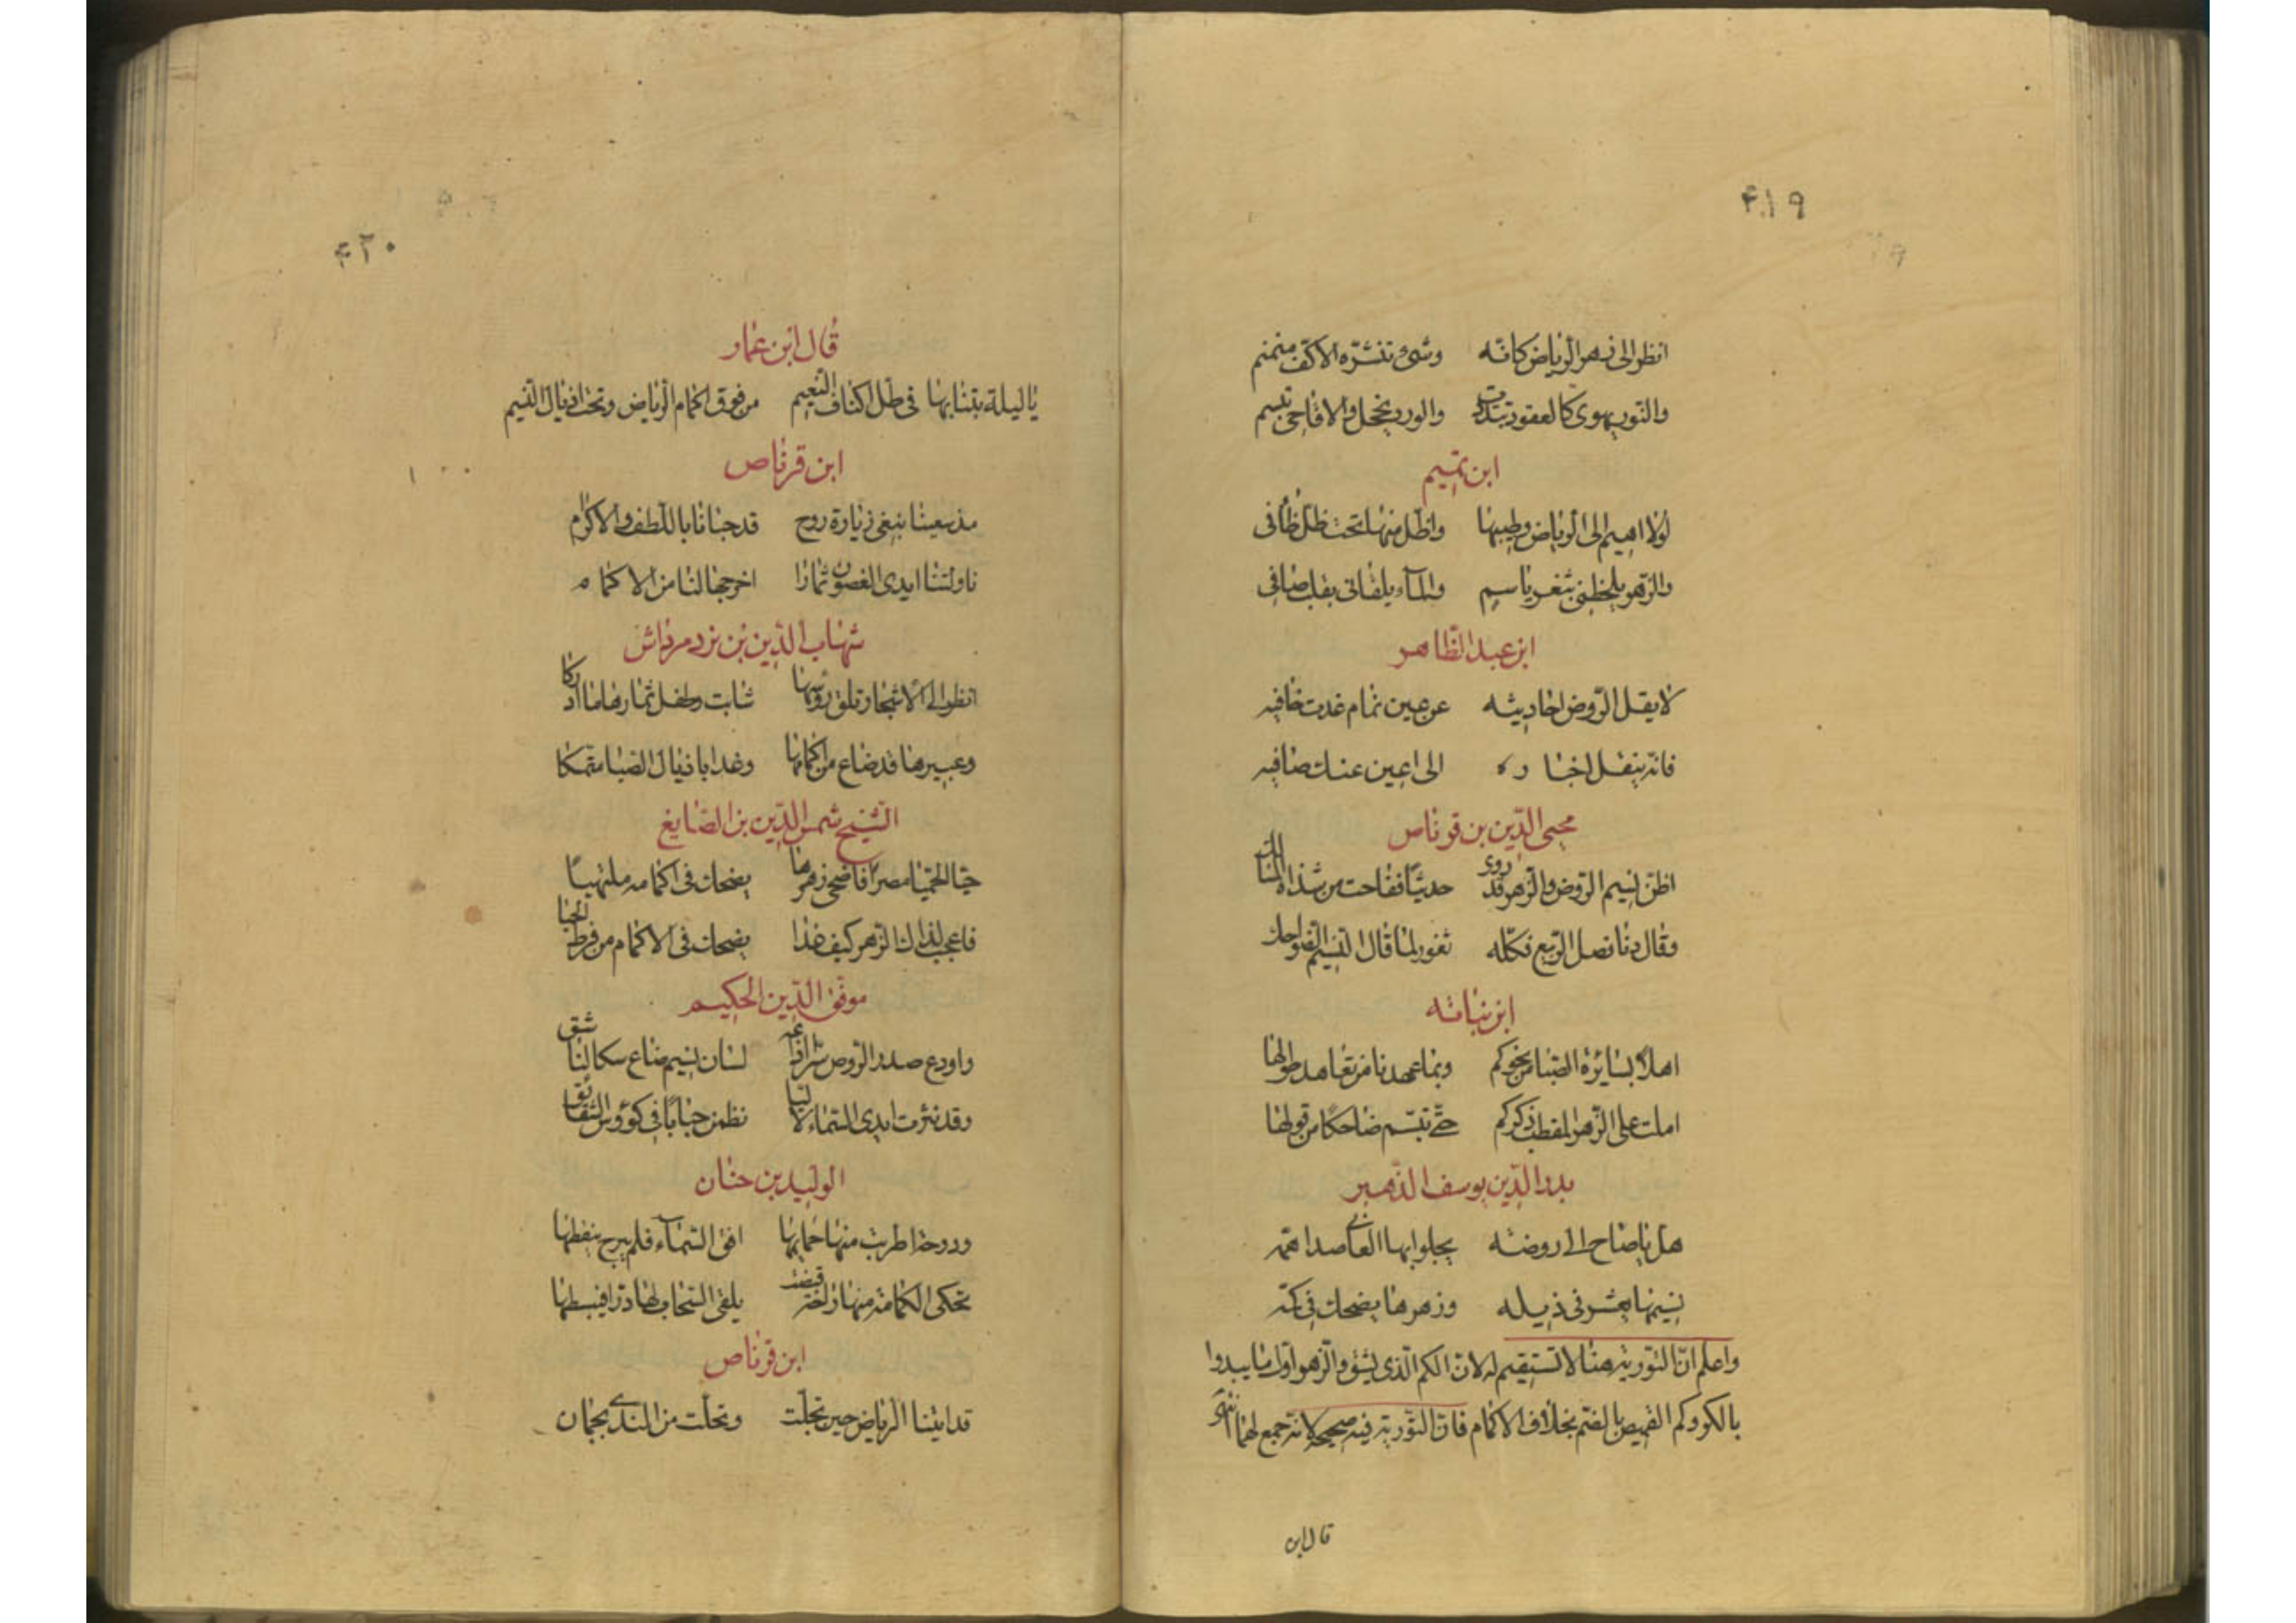 ۴۱۹
انظر الى زهر الرياض كانه وشى تنشره الاكف منمنم
والنور يهوى كالعقود تبددت والورد يخجل والاقاحى تبسم
ابن تميم
لولا اهيم الى الرياض وطيبها واظل منها تحت ظل ظافى
والزهر يلحظنى بثغر باسم والمآء يلقانى بقلب صافى
ابن عبد الظاهر
لا ينقل الروض احاديثه عن عين نمام غدت خافيه
فانه ينقل اخباره الى اعين عنك صافيه
محيى الدين بن قرناص
اظن نسيم الروض والزهر قد روى حديثا ففاحت من شذاه المسالك
وقال دنا فصل الربيع فكله ثغور لما قال النسيم ضواحك
ابن نباته
اهلا بسائرة الصبا من نحوكم وبما عهدنا من تعاهد طولها
املت على الزهر المقطب ذكركم حتى تبسم ضاحكا من قولها
بدر الدين يوسف الذهبى
هل يا صاح الى روضه يجلو بها العانى صدا همه
نسيمها يعثر فى ذيله وزهرها يضحك فى كمه
واعلم ان التوريه هنا لا تستقيم له لان الكم الذى يشق والزهر اول ما يبدوا
بالكسر وكم القميص بالضم بخلاف الاكمام فان التورية فيه صحيحة لانه جمع لهما
قال ابن
۴۲۰
قال ابن عمار
يا ليلة بتنا بها فى ظل اكناف النعيم من فوق اكمام الرياض وتحت اذيال النسيم
ابن قرناص
مذ سعينا نبغى زيارة روح قد حبانا باللطف والاكرام
ناولتنا ايدى الغصون ثمارا اخرجها لنا من الاكمام
شهاب الدين بن نرد مرداش
انظر الى الاشجار تلق رؤسها شابت وطفل ثمارها ما ادركا
وعبيرها قد ضاع من اكمامها وغدا باذيال الصبا متمسكا
الشيخ شمس الدين بن الصايغ
حيا الحيا مصرا فاضحى زهرها يضحك فى اكمامه ملتهيا
فاعجب لذاك الزهر كيف غدا يضحك فى الاكمام من فرط الحيا
موفق الدين الحكيم
واودع صدر الروض شرافه لسان نسيم ضاع
وقد نثرت ايدى السماء لاليا نظمن حبابا فى كؤوس الشقائق
الوليد بن حنان
ودوحة اطربت منها حمايمها افق السمآء فلم يبرح ينقطها
تحكى الكمامة منها راحة قبضت يلقى السحاب لها درا فيبسطها
ابن قرناص
قد اتينا الرياض حين تجلت وتحلت من الندى بجمان